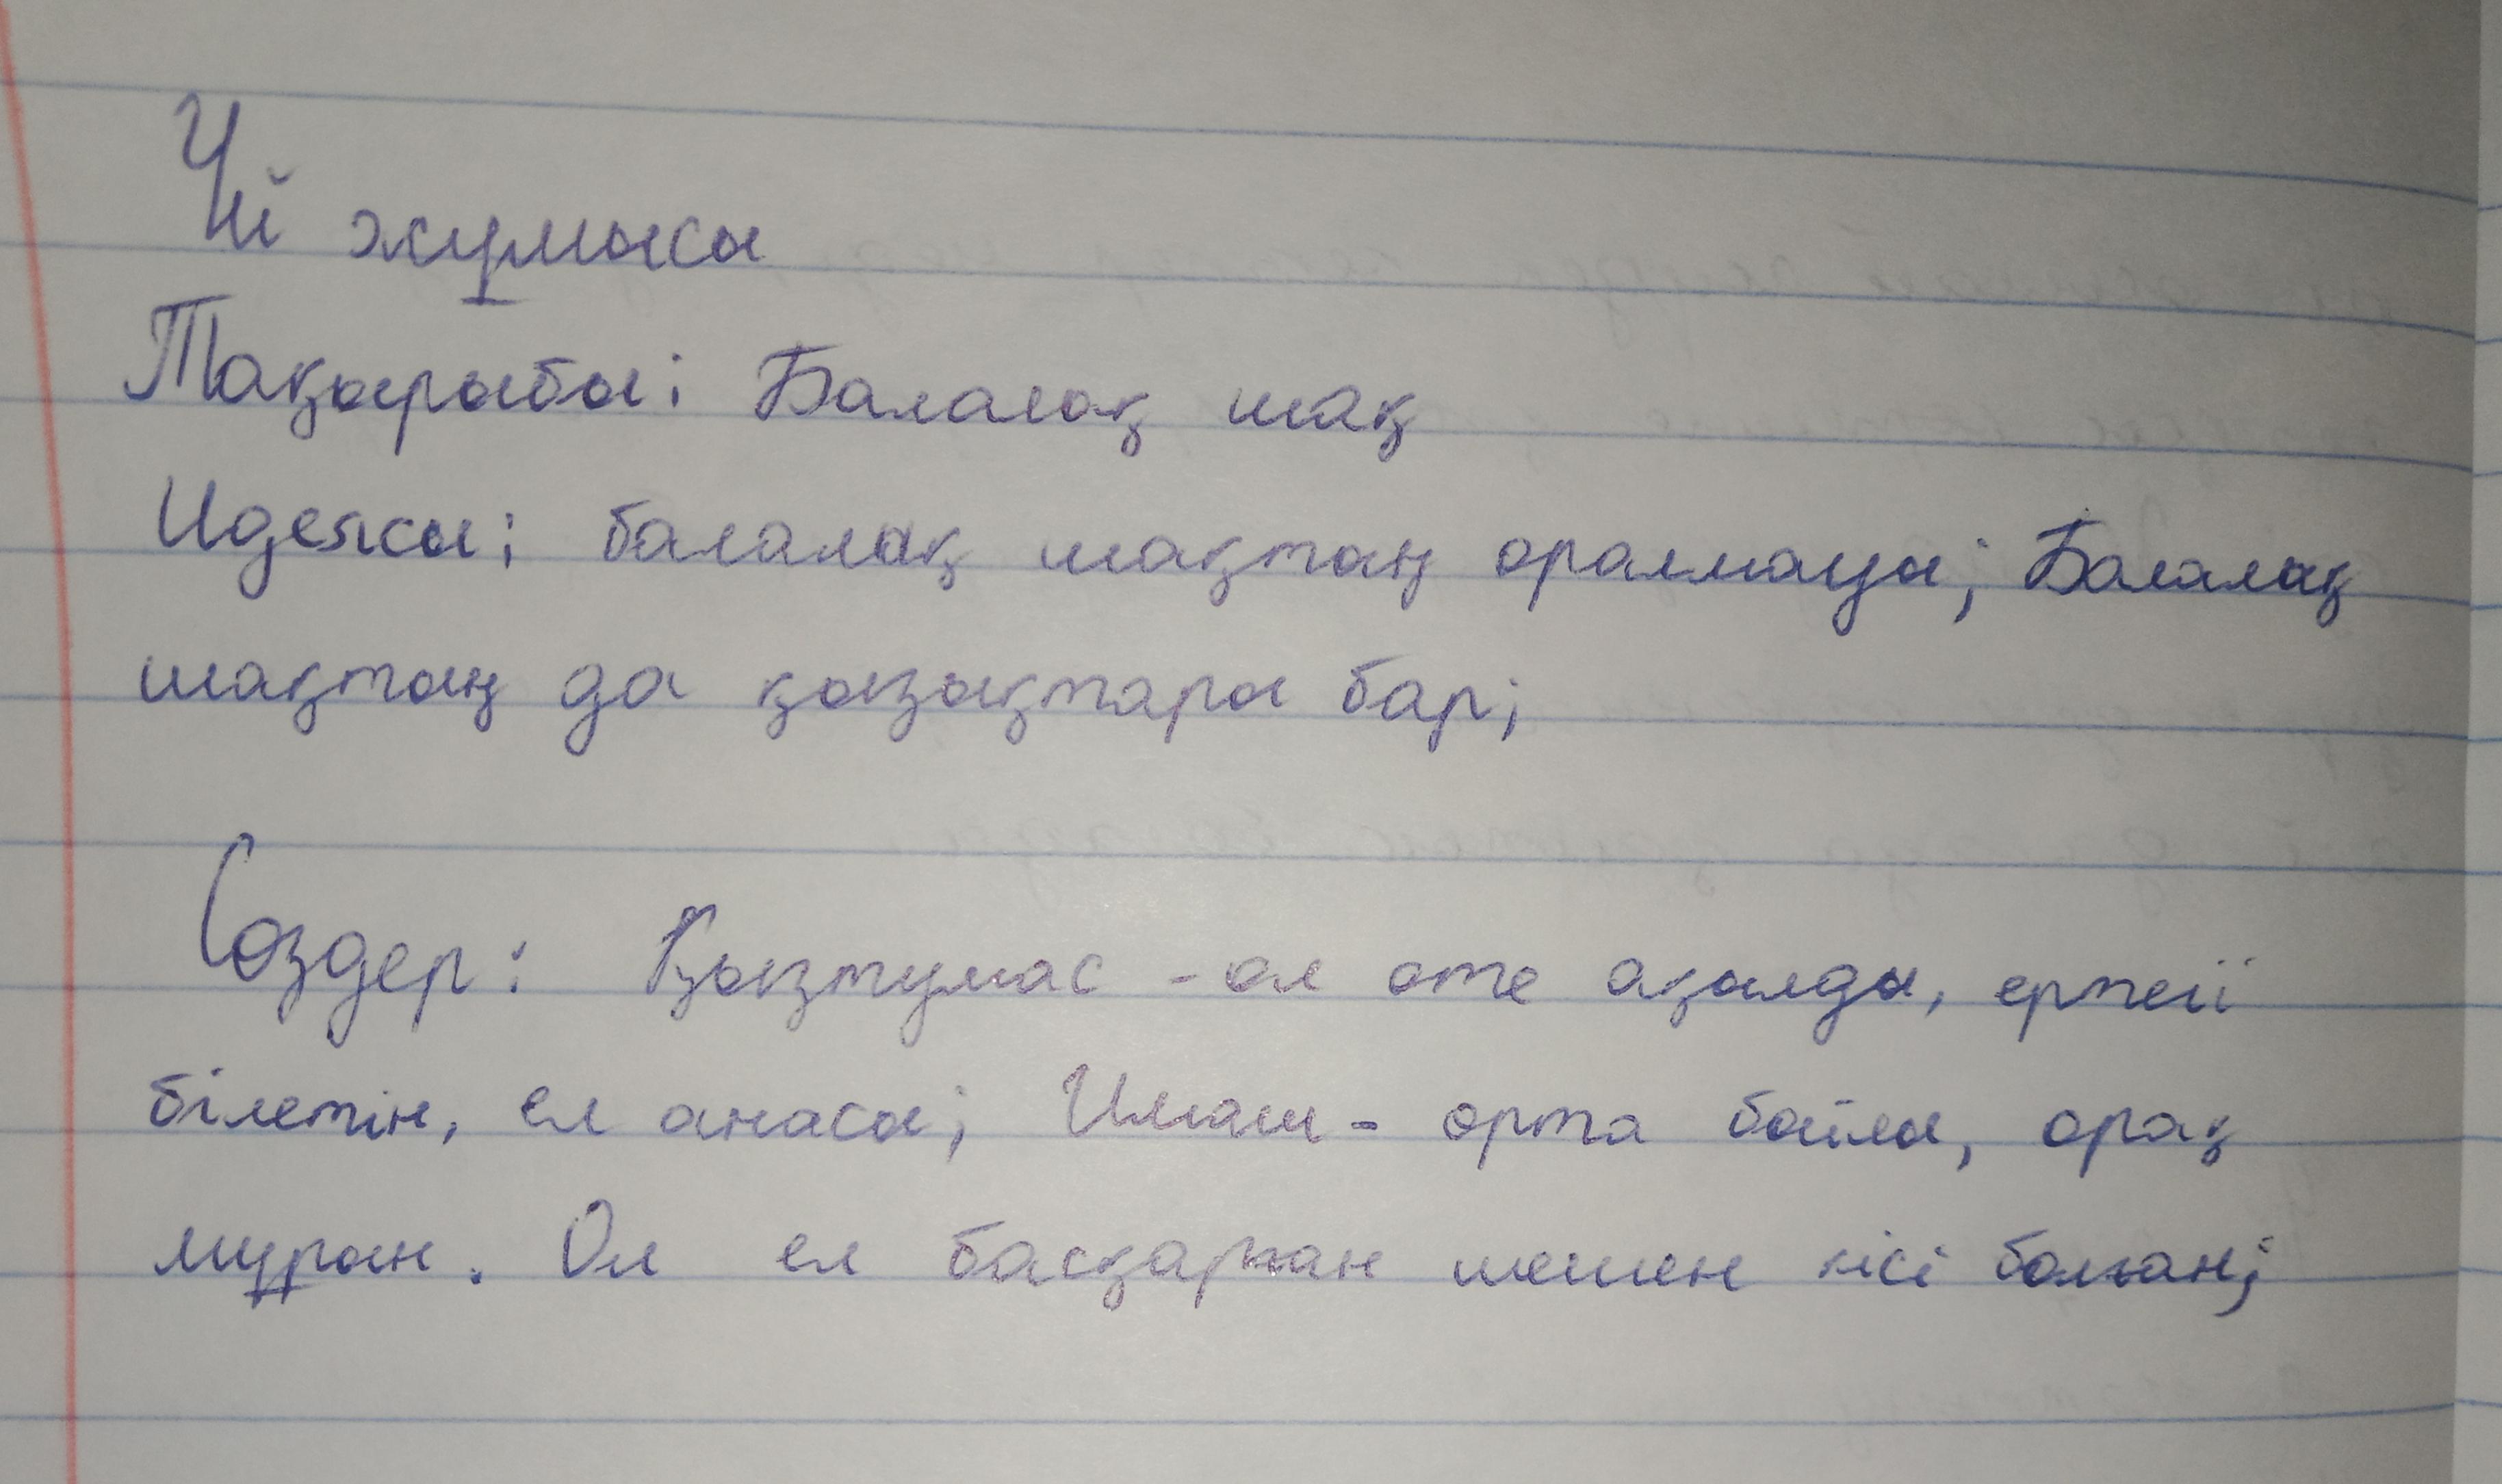 Үй жұмысы
Тақырыбы: Балалақ шақ
Идеясы: балалақ шақтаң оралмауы; Балалақ
шақтаң да қызықтары бар;
Сөздер: Қызтумас - ол өте ақылды, ертегі
білетін, ел анасы; Имаш - орта бойлы, орақ
мұрын. Ол ел басқарған шешен кісі болған;